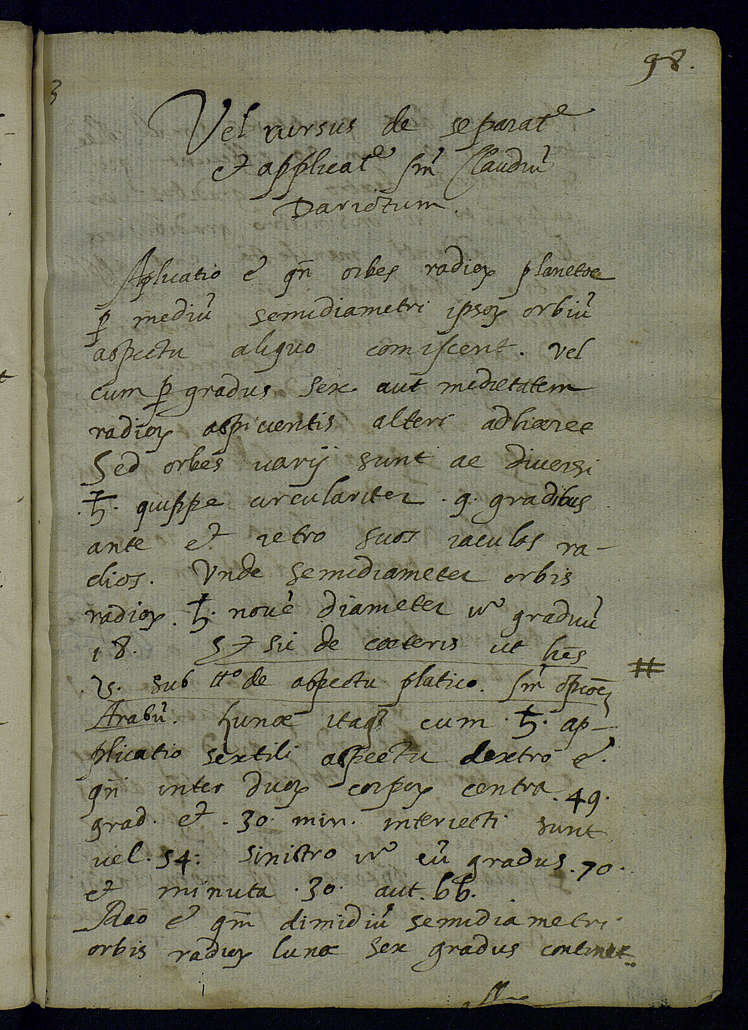 98.
3
Vel rursus de separatᵉ
et applicatᵉ sm̄ Claudiū
Dariotum.
Aplicatio ē qn̄ orbes radioꝝ planetæ
ꝑ mediū semidiametri ipsoꝝ orbiū
aspectu aliquo comiscent. vel
cum ꝑ gradus sex aut medietatem
radioꝝ aspicientis alteri adhæree
Sed orbes varij sunt ac diversi
.♄. quippe circulariter .9. gradibus
ante et retro suos iaculas ra-
dios. Vnde semidiameter orbis
radioꝝ .♄. novē diameter vº graduū
18. Et sic de cæteris ut hēs
.5. sub ttº de aspectu platico. sm̄ opioēs #
Arabū. Lunæ itaqȝ cum .♄. ap-
plicatio sextili aspectu dextro ē.
qn̄ inter duoꝝ corpoꝝ centra .49.
grad. et .30. min. interiecti sunt
vel .54: sinistro vº cū gradus .70.
et minuta .30. aut .66.
Raō ē qm̄ dimidiū semidiametri
orbis radioꝝ lunæ sex gradus continet